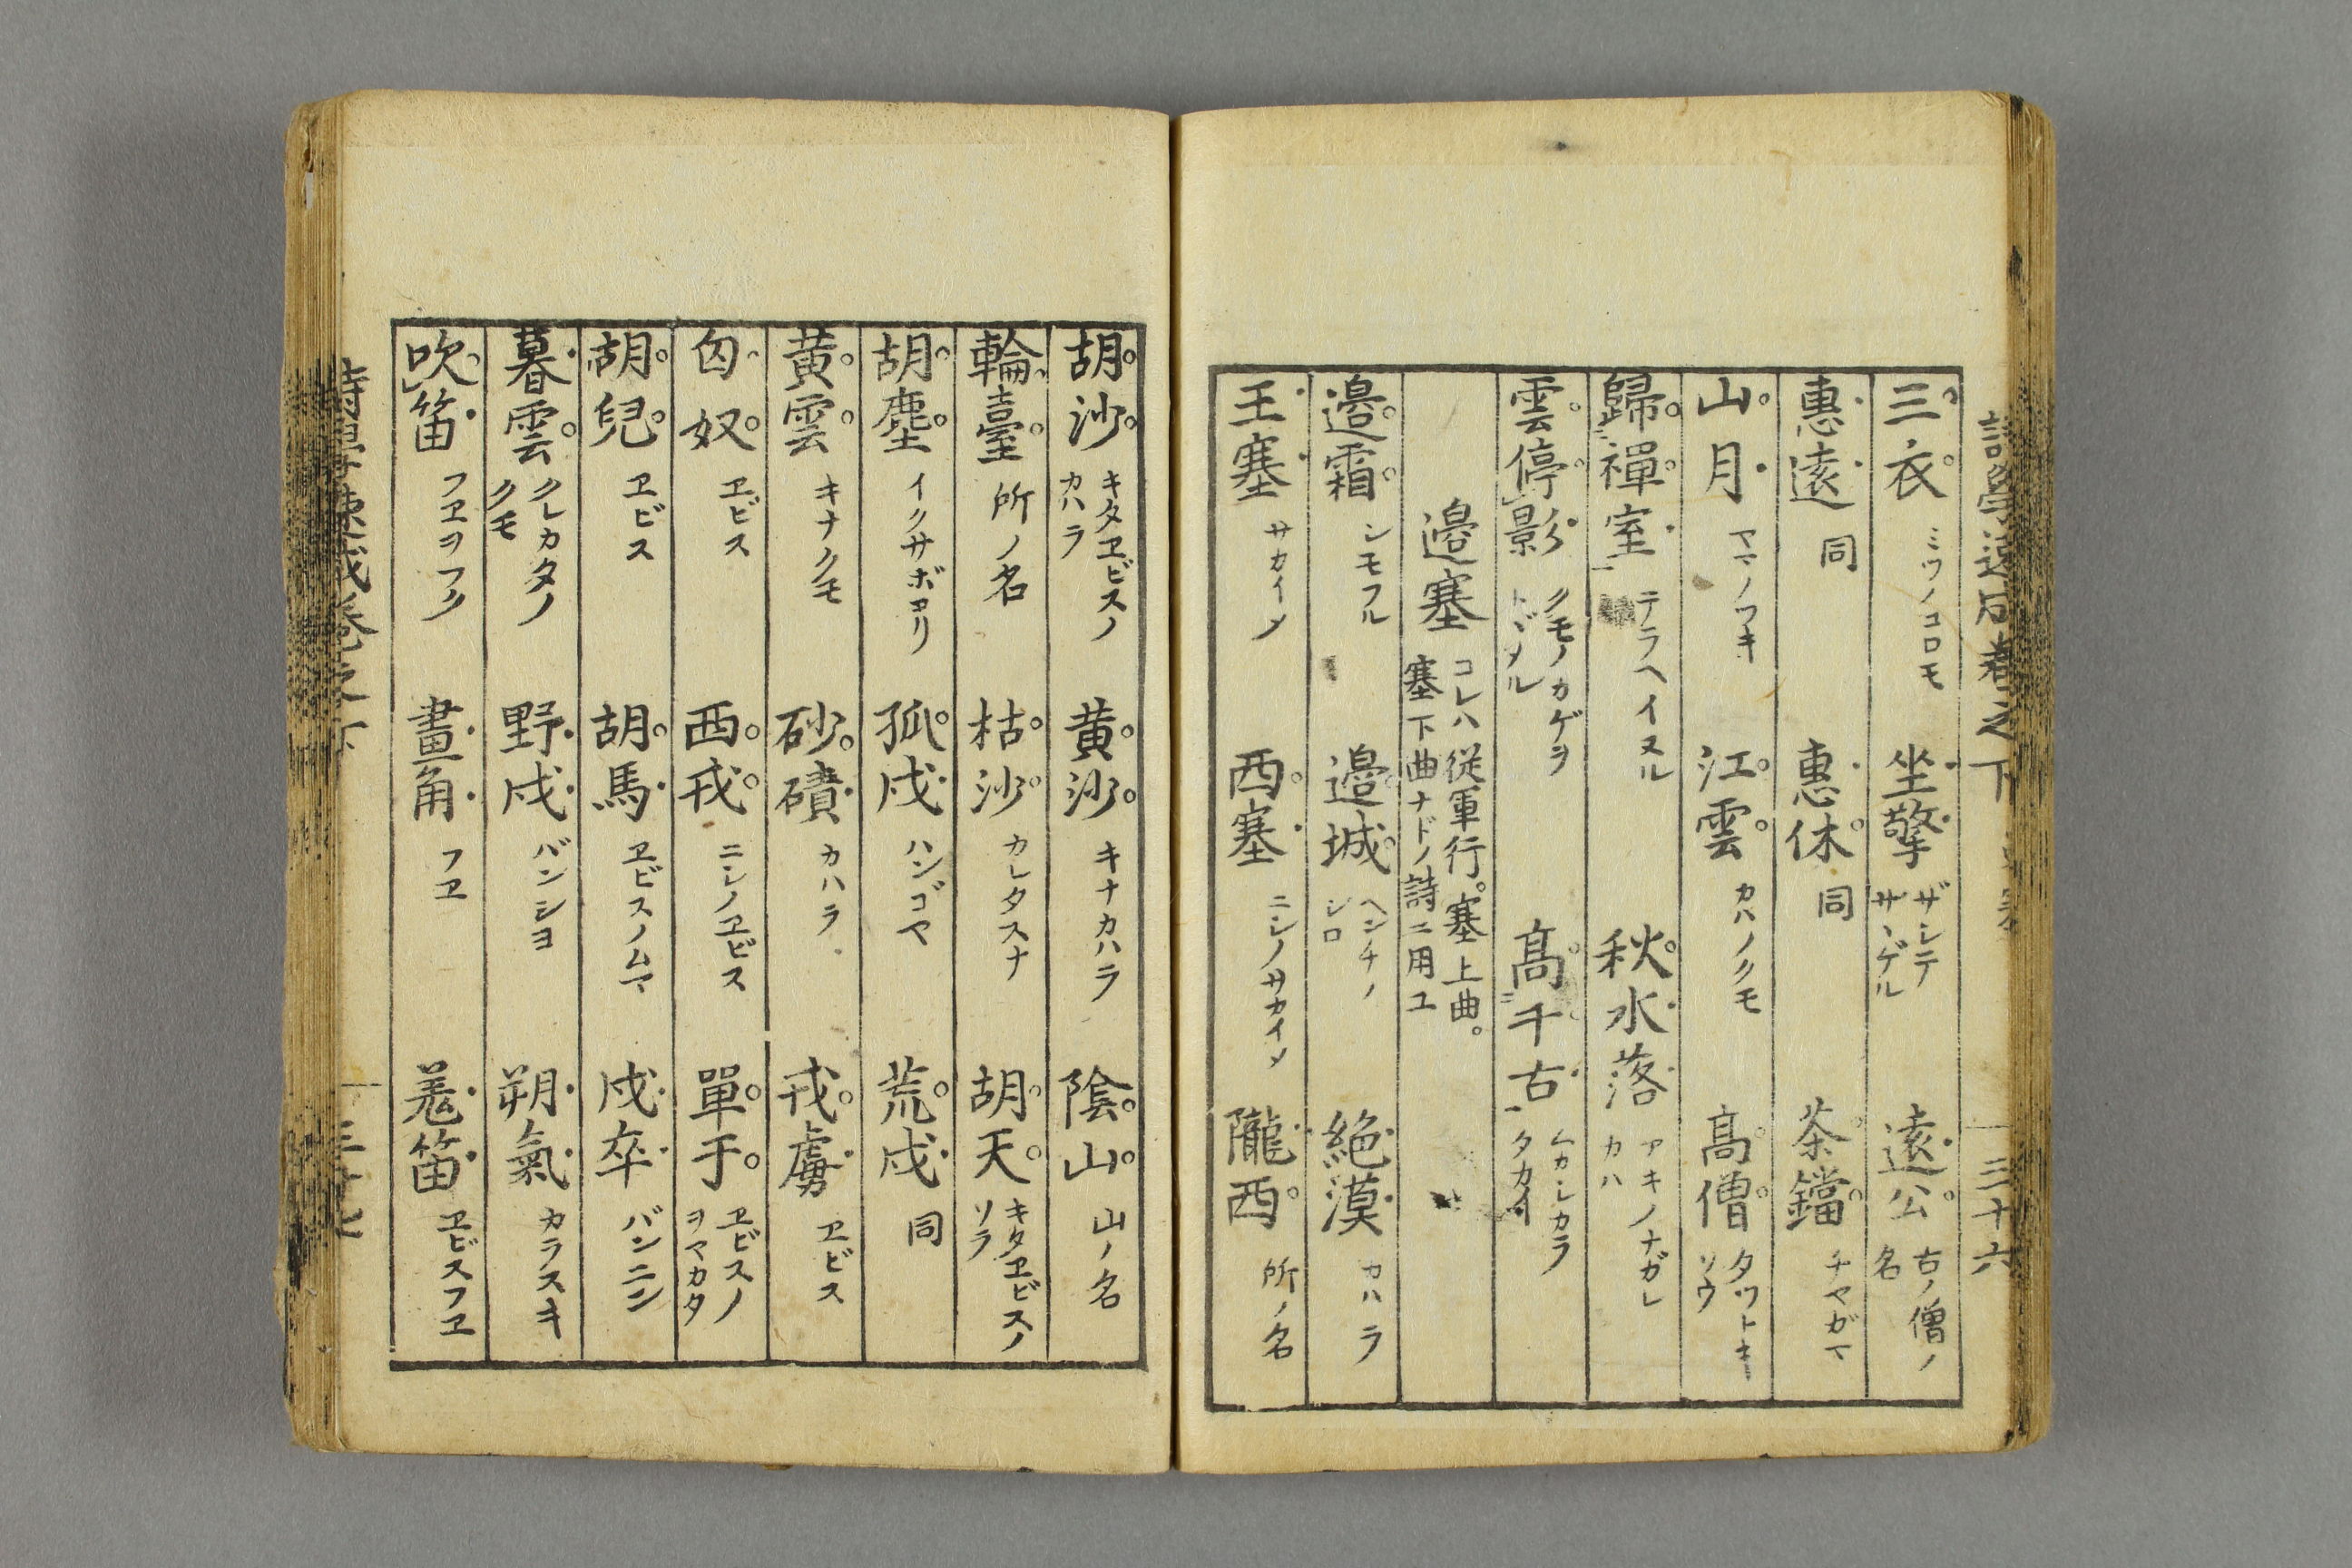 三衣 ミツノコロモ 坐擎 ザシテサヽゲル 遠公 古ノ僧ノ名
惠遠 同 惠休 同 茶鐺 チヤガマ
山月 ヤマノツキ 江雲 カハノクモ 高僧 タツトキソウ
歸禪室 テラヘイヌル 秋水落 アキノナガレカハ
雲停影 クモノカゲヲトヾメル 高千古 ムカシカラタカイ
邉塞 コレハ従軍行。塞上曲。塞下曲ナドノ詩ニ用ユ
邉霜 シモフル 邉城 ヘンチノシロ 絶漠 カハラ
王塞 サカイメ 西塞 ニシノサカイメ 隴西 所ノ名
三十六
胡沙 キタヱビスノカハラ 黄沙 キナカハラ 陰山 山ノ名
輪臺 所ノ名 枯沙 カレタスナ 胡天 キタヱビスノソラ
胡塵 イクサボコリ 孤戍 ハンゴヤ 荒戍 同
黄雲 キナクモ 砂磧 カハラ 戎虜 ヱビス
匈奴 ヱビス 西戎 ニシノヱビス 單于 ヱビスノヲマカタ
胡兒 ヱビス 胡馬 ヱビスノムマ 戍卒 バンニン
暮雲 クレカタノクモ 野戍 バンシヨ 朔氣 カラスキ
吹笛 フヱヲフク 畫角 フヱ 羌笛 ヱビスフヱ